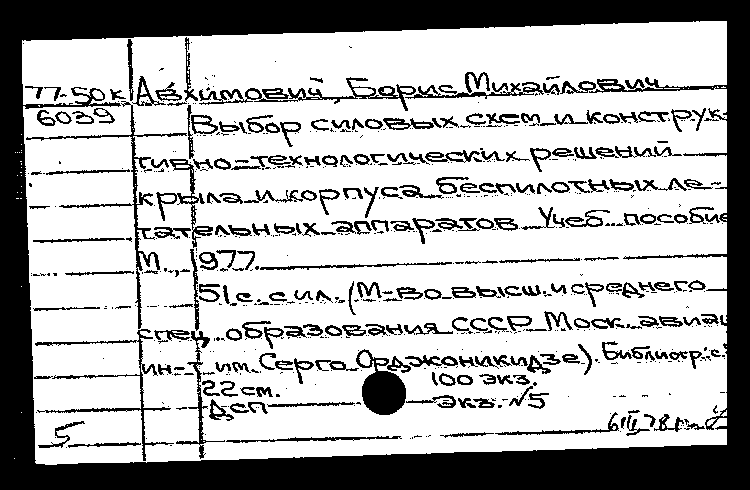 77-50к Авхимович, Борис Михайлович
6039 Выбор силовых схем и конструк-
тивно-технологических решений
крыла и корпуса беспилотных ле-
тательных аппаратов. Учеб. пособие
М., 1977.
51 с. с ил. (М-во высш. и среднего
спец. образования СССР Моск. авиац
ин-т им. Серго Орджоникидзе). Библиогр.: с.
22 см. 100 экз.
ДСП Экз. №5
5 6III,78